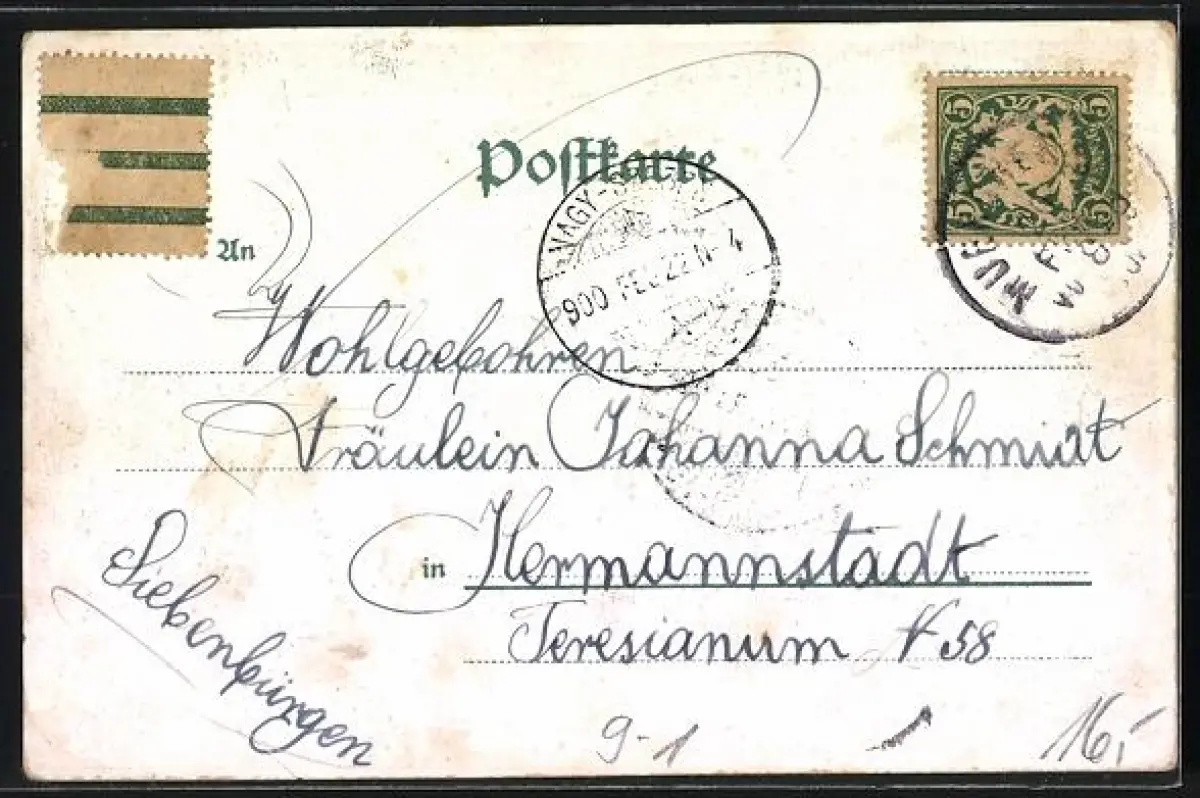 Postkarte
5 5
5 5
NAGY-
900 FEB. 22 N. 4
An
Wohlgebohren
Fräulein Johanna Schmidt
in Hermannstadt
Teresianum N 58
Siebenbürgen
9-1
16,-